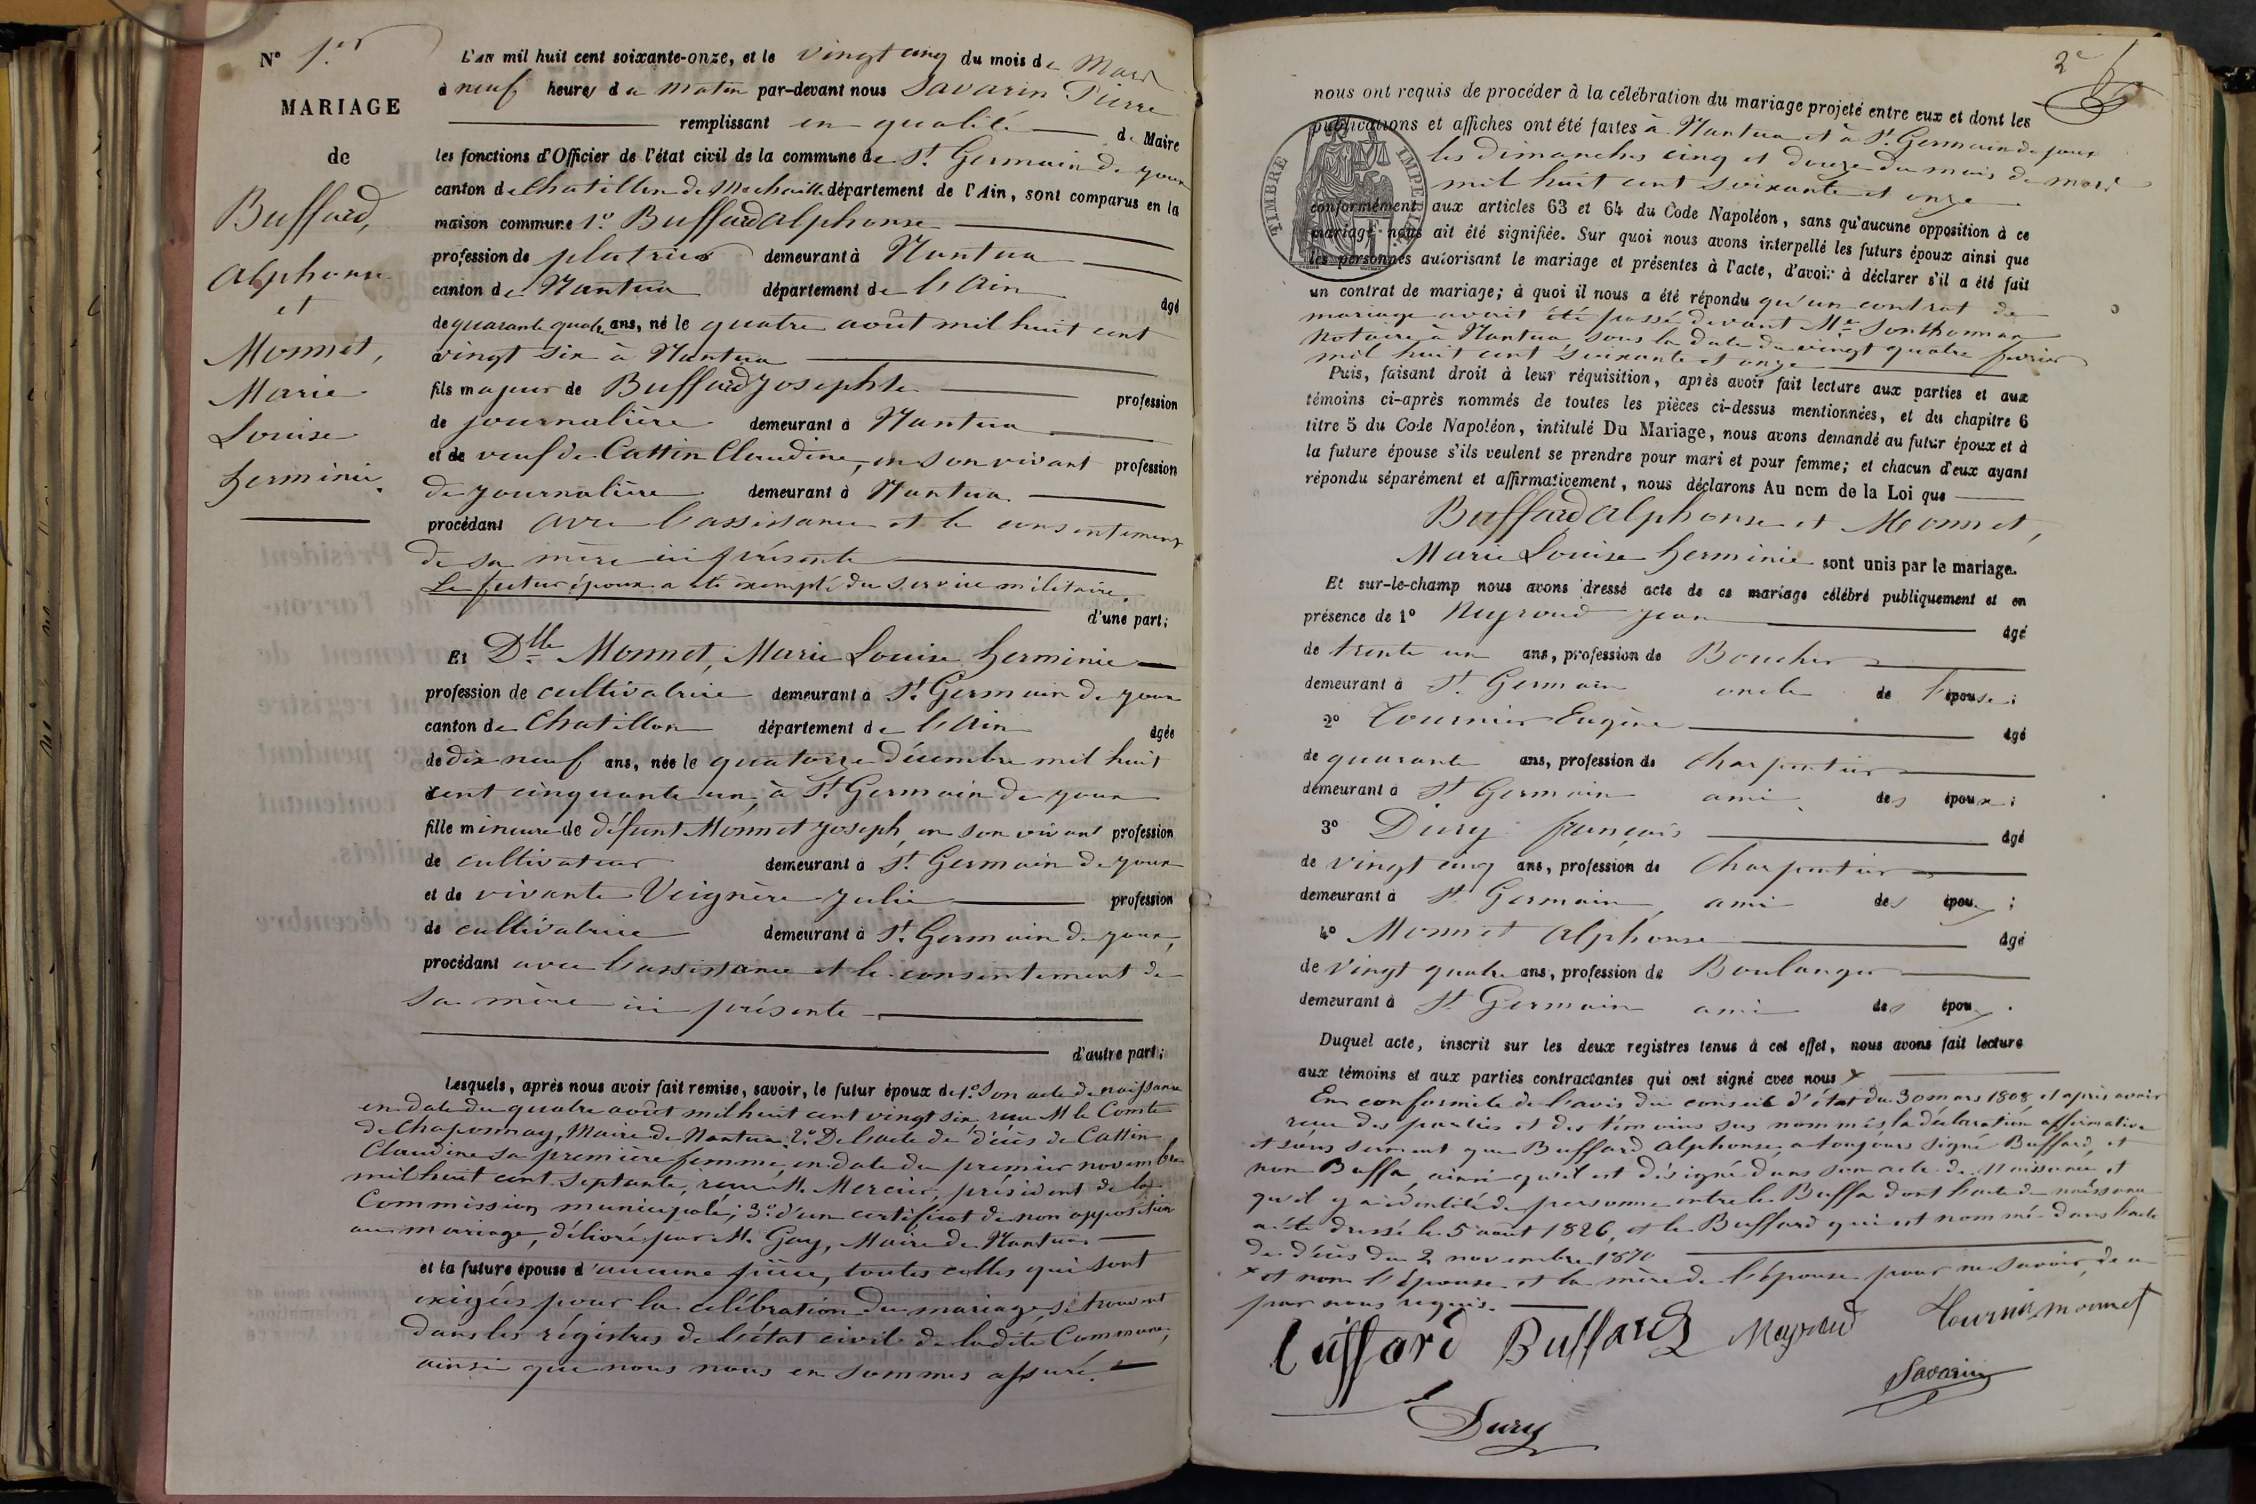 N° 1.er
MARIAGE
de
Buffard,
Alphonse
et
Monnet,
Marie
Louise
herminie.
L'an mil huit cent soixante-onze, et le vingt cinq du mois de Mars
à neuf heures du matin par-devant nous Savarin Pierre
remplissant en qualité de Maire
les fonctions d'Officier de l'état civil de la commune de St. Germain de joux
canton de Chatillon de Michaille département de l'Ain, sont comparus en la
maison commune 1°. Buffard Alphonse
profession de platrier demeurant à Nantua
canton de Nantua département de l'Ain âgé
de quarante quatre ans, né le quatre août mil huit cent
vingt six à Nantua
fils majeur de Buffard Josephte profession
de journalière demeurant à Nantua
et de veuf de Cattin Claudine, en son vivant profession
de journalière demeurant à Nantua
procédant avec l'assistance et le consentement
de sa mère ici présente
Le futur époux a été exempté du service militaire.
d'une part;
Et Dlle Monnet, Marie Louise herminie
profession de cultivatrice demeurant à St. Germain de joux
canton de Chatillon département de l'Ain âgée
de dix neuf ans, née le quatorze décembre mil huit
cent cinquante un, à St. Germain de joux
fille mineure de défunt Monnet joseph, en son vivant profession
de cultivateur demeurant à St. Germain de joux
et de vivante Veignère Julie profession
de cultivatrice demeurant à St. Germain de joux,
procédant avec l'assistance et le consentement de
sa mère ici présente
d'autre part;
Lesquels, après nous avoir fait remise, savoir, le futur époux de 1°. Son acte de naissance
en date du quatre août mil huit cent vingt six, reçu M. le Comte
de Chaponnay, Maire de Nantua; 2°. De l'acte de décès de Cattin
Claudine sa première femme, en date du premier novembre
mil huit cent septante, reçu M. Mercier, président de la
Commission municipale; 3°. d'un certificat de non opposition
au mariage, délivré par M. Gay, Maire de Nantua
et la future épouse d'aucune pièce, toutes celles qui sont
exigées pour la célébration du mariage, se trouvent
dans les régistres de l'état civil de ladite Commune,
ainsi que nous nous en sommes assuré.
2e
nous ont requis de procéder à la célébration du mariage projeté entre eux et dont les
publications et affiches ont été faites à Nantua et à St. Germain de joux
les dimanches cinq et douze du mois de mars
mil huit cent soixante et onze
TIMBRE IMPERIAL
conformément aux articles 63 et 64 du Code Napoléon, sans qu'aucune opposition à ce
mariage nous ait été signifiée. Sur quoi nous avons interpellé les futurs époux ainsi que
les personnes autorisant le mariage et présentes à l'acte, d'avoir à déclarer s'il a été fait
un contrat de mariage; à quoi il nous a été répondu qu'un contrat de
mariage avait été passé devant Me. Sonthonnax
Notaire à Nantua, sous la date du vingt quatre février
mil huit cent soixante et onze
Puis, faisant droit à leur réquisition, après avoir fait lecture aux parties et aux
témoins ci-après nommés de toutes les pièces ci-dessus mentionnées, et du chapitre 6
titre 5 du Code Napoléon, intitulé Du Mariage, nous avons demandé au futur époux et à
la future épouse s'ils veulent se prendre pour mari et pour femme; et chacun d'eux ayant
répondu séparément et affirmativement, nous déclarons Au nom de la Loi que
Buffard Alphonse et Monnet,
Marie Louise herminie sont unis par le mariage.
Et sur-le-champ nous avons dressé acte de ce mariage célébré publiquement et en
présence de 1° Neyroud Jean âgé
de trente un ans, profession de Boucher
demeurant à St. Germain oncle de l'épouse;
2° Tournier Eugène âgé
de quarante ans, profession de charpentier
demeurant à St Germain ami des époux;
3° Dury françois âgé
de vingt cinq ans, profession de charpentier
demeurant à St Germain, ami des époux;
4° Monnet Alphonse âgé
de vingt quatre ans, profession de Boulanger
demeurant à St Germain ami des époux.
Duquel acte, inscrit sur les deux registres tenus à cet effet, nous avons fait lecture
aux témoins et aux parties contractantes qui ont signé avec nous x
En conformité de l'avis du conseil d'état du 30 mars 1808, et après avoir
reçu des parties et des témoins sus nommés, la déclaration affirmative
et sous serment que Buffard Alphonse, a toujours signé Buffard, et
non Buffa, ainsi qu'il est désigné dans son acte de Naissance, et
qu'il y a identité de personne entre le Buffa dont l'acte de naissance
a été dressé le 5 août 1826, et le Buffard qui est nommé dans l'acte
de décès du 2 novembre 1870
x et non l'épouse et la mère de l'épouse pour ne savoir, de ce
par nous requis.
Buffard Buffard Neyroud Tournier monnet
Savarin
Dury